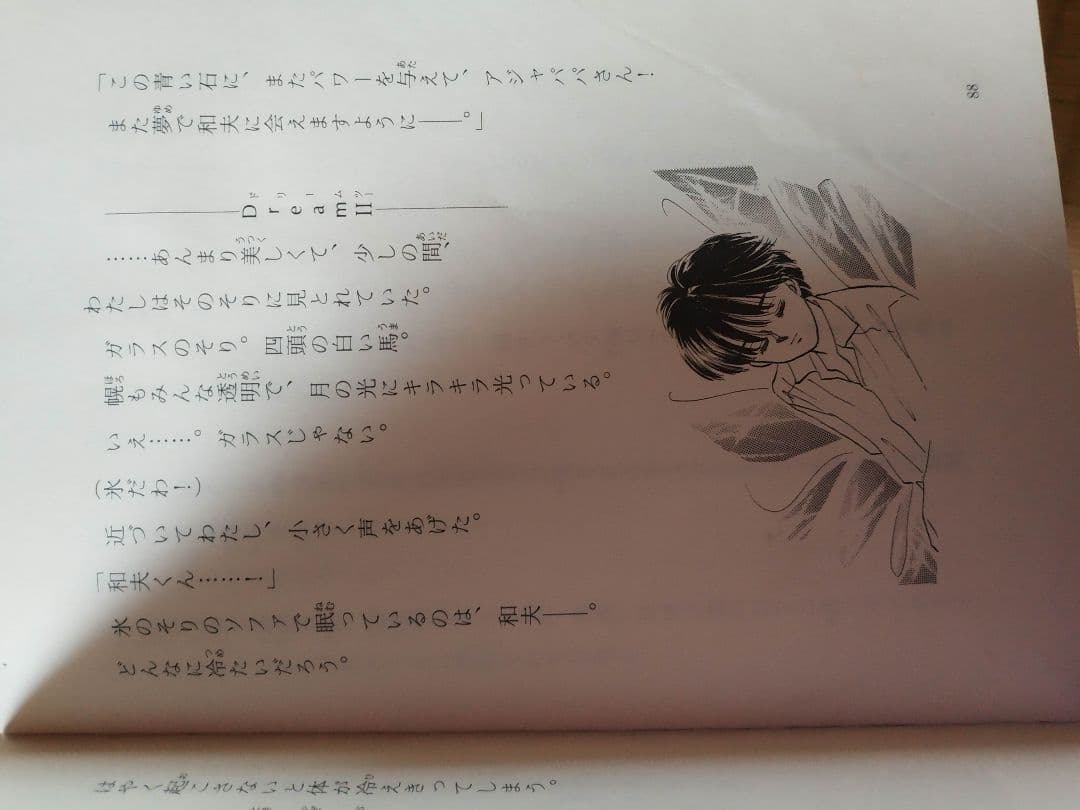 「この青い石に、またパワーを与えて、アジャパパさん！
また夢で和夫に会えますように――。」
DreamⅡ
……あんまり美しくて、少しの間、
わたしはそのそりに見とれていた。
ガラスのそり。四頭の白い馬。
幌もみんな透明で、月の光にキラキラ光っている。
いえ……。ガラスじゃない。
（氷だわ！）
近づいてわたし、小さく声をあげた。
「和夫くん……！」
氷のそりのソファで眠っているのは、和夫――。
どんなに冷たいだろう。
88
はやく起こさないと体が冷えきってしまう。